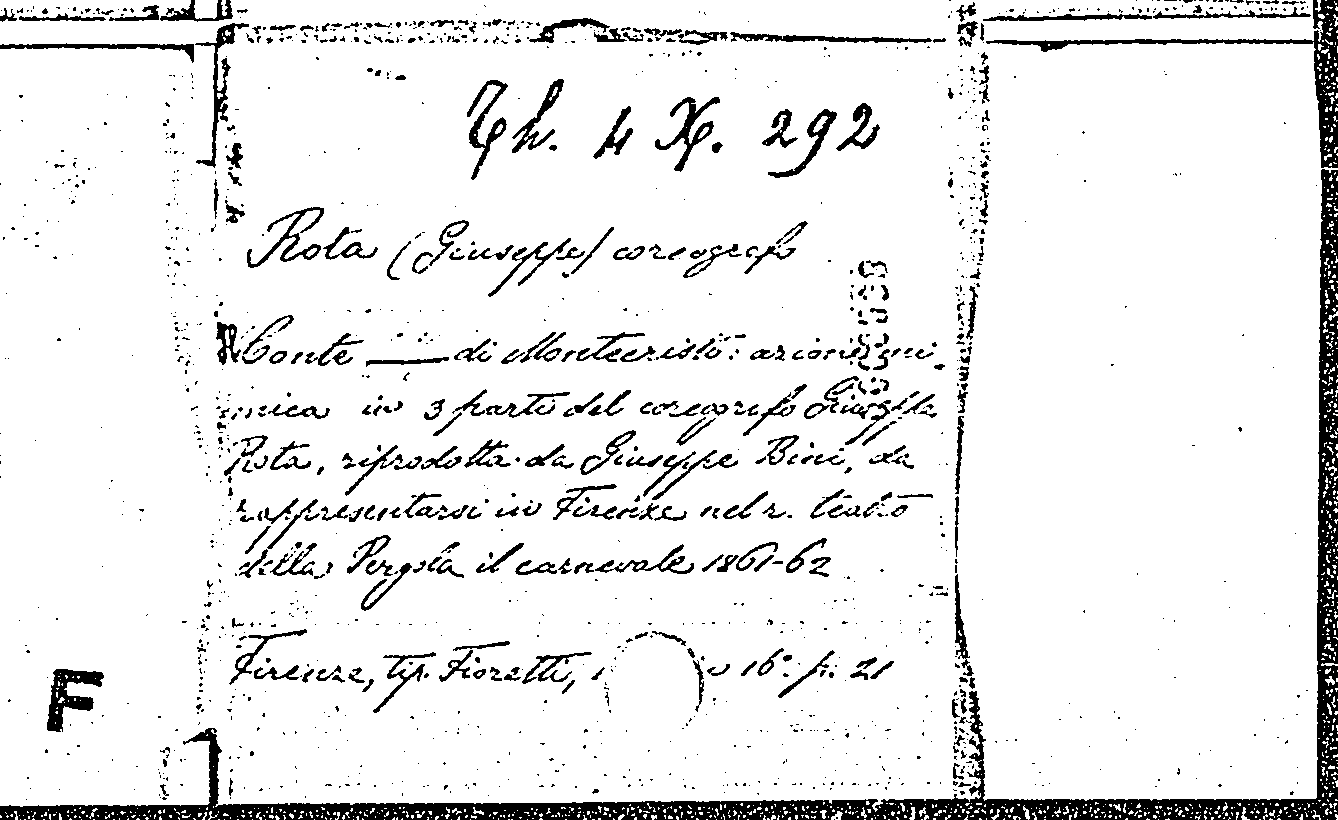 Th. 4 H. 292
Rota (Giuseppe) coreografo
Il Conte di Montecristo: azione mi
mica in 3 parti del coreografo Giuseppe
Rota, riprodotta da Giuseppe Bini, da
rappresentarsi in Firenze nel r. teatro
della Pergola il carnevale 1861-62
Firenze, tip. Fioretti, 16° p. 21
F